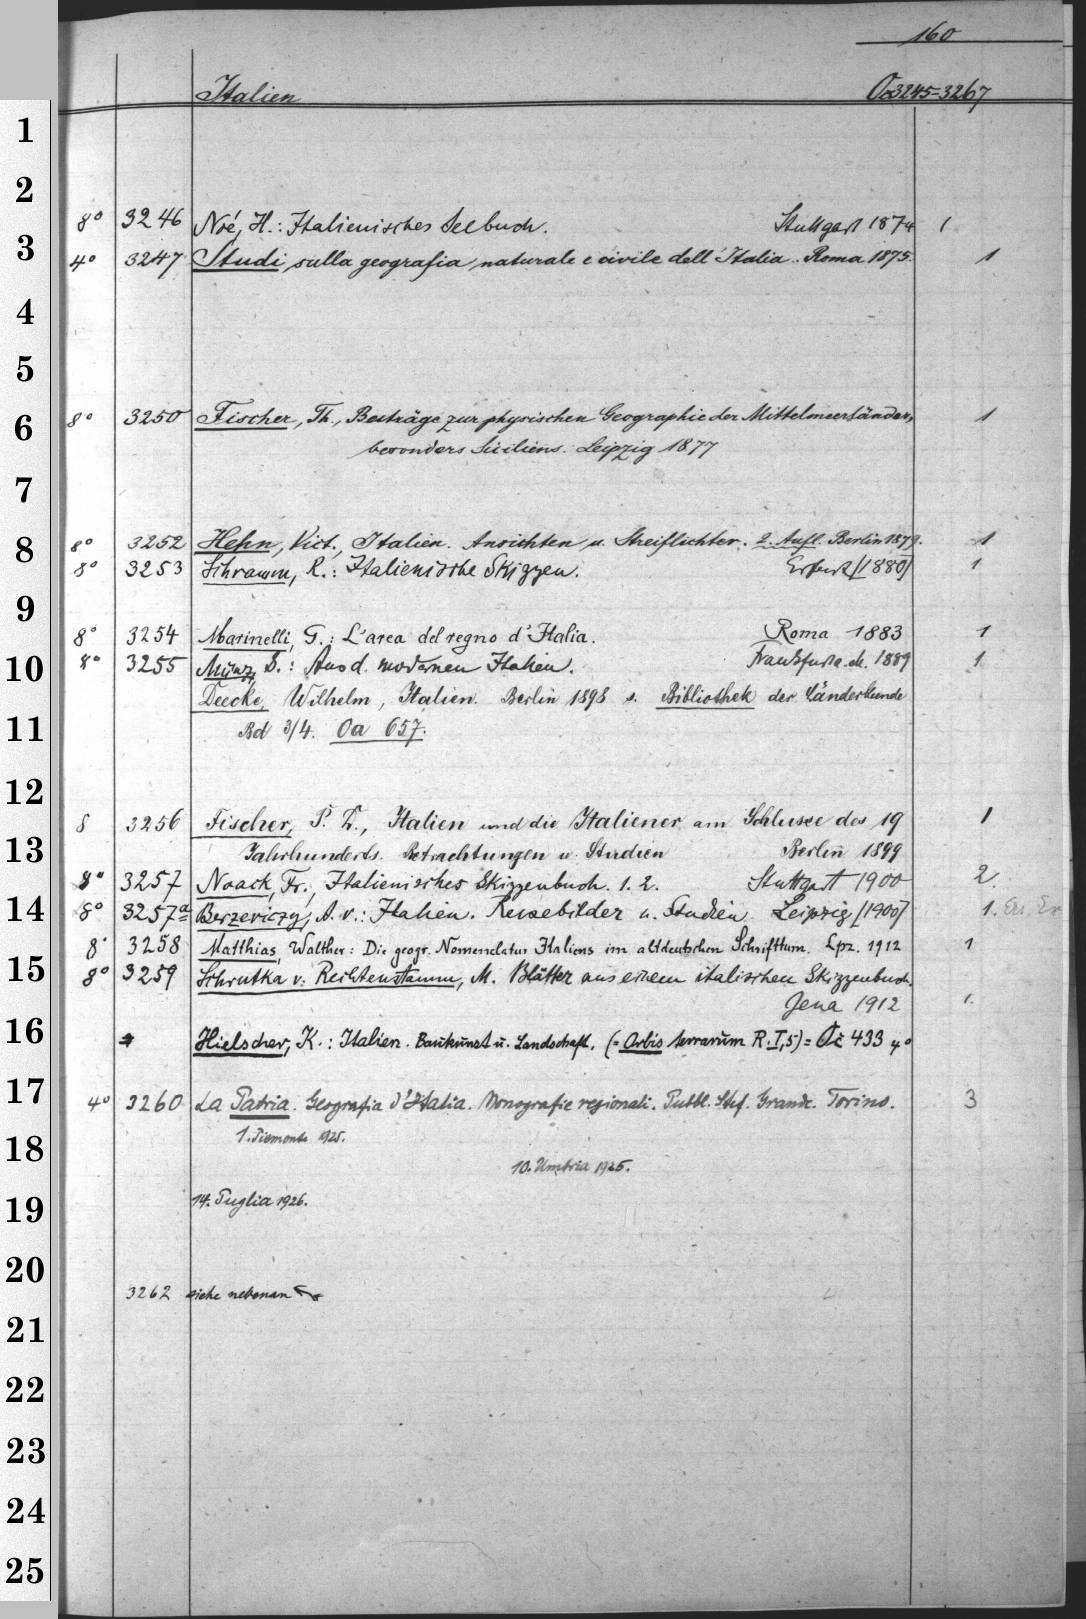 160
Italien Oc 3245-3267
1
2
8° 3246 Noé, H.: Italienisches Seebuch. Stuttgart 1874 1
3
4° 3247 Studi sulla geografia naturale e civile dell'Italia. Roma 1875. 1
4
5
6
8° 3250 Fischer, Th., Beiträge zur physischen Geographie der Mittelmeerländer, 1
besonders Siciliens. Leipzig 1877
7
8
8° 3252 Hehn, Vict., Italien. Ansichten u. Streiflichter. 2. Aufl. Berlin 1879. 1
8° 3253 Schramm, R.: Italienische Skizzen. Erfurt [1880] 1
9
8° 3254 Marinelli, G.: L'area del regno d'Italia. Roma 1883 1
10
8° 3255 Münz, S.: Aus d. modernen Italien. Frankfurt a. M. 1889 1
Deecke, Wilhelm, Italien. Berlin 1898 s. Bibliothek der Länderkunde
11
Bd 3/4. Oa 657.
12
8 3256 Fischer, P. D., Italien und die Italiener am Schlusse des 19 1
13
Jahrhunderts. Betrachtungen u. Studien Berlin 1899
8° 3257 Noack, Fr., Italienisches Skizzenbuch. 1. 2. Stuttgart 1900 2.
14
8° 3257a Berzeviczy, A. v.: Italien. Reisebilder u. Studien. Leipzig [1900] 1.
8° 3258 Matthias, Walther: Die geogr. Nomenclatur Italiens im altdeutschen Schrifttum. Lpz. 1912 1
15
8° 3259 Schrutka v. Rechtenstamm, M. Blätter aus einem italischen Skizzenbuch.
Jena 1912 1.
16
Hielscher, K.: Italien. Baukunst u. Landschaft. (= Orbis terrarum R. I,5) = Oc 433 4°
17
4° 3260 La Patria. Geografia d'Italia. Monografie regionali. Pubbl. Stef. Grande. Torino. 3
1. Piemonte 1925.
18
10. Umbria 1925.
19
14. Puglia 1926.
20
3262 siehe nebenan
21
22
23
24
25